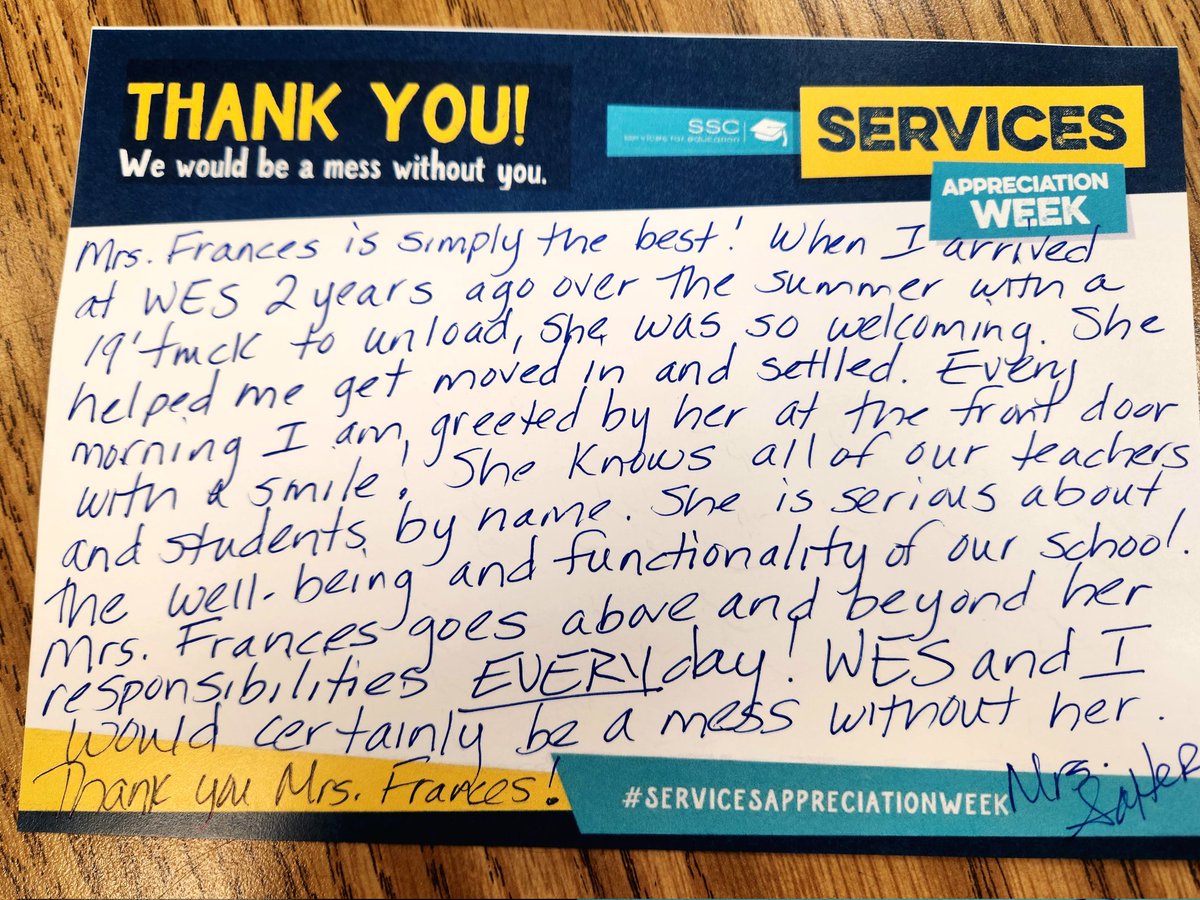 THANK YOU!
We would be a mess without you.
SSC
services for education
SERVICES
APPRECIATION
WEEK
Mrs. Frances is simply the best! When I arrived
at WES 2 years ago over the summer with a
19' truck to unload, she was so welcoming. She
helped me get moved in and settled. Every
morning I am greeted by her at the front door
with a smile! She knows all of our teachers
and students by name. She is serious about
the well-being and functionality of our school.
Mrs. Frances goes above and beyond her
responsibilities EVERY day! WES and I
would certainly be a mess without her.
Thank you Mrs. Frances!
#SERVICESAPPRECIATIONWEEK
Mrs.